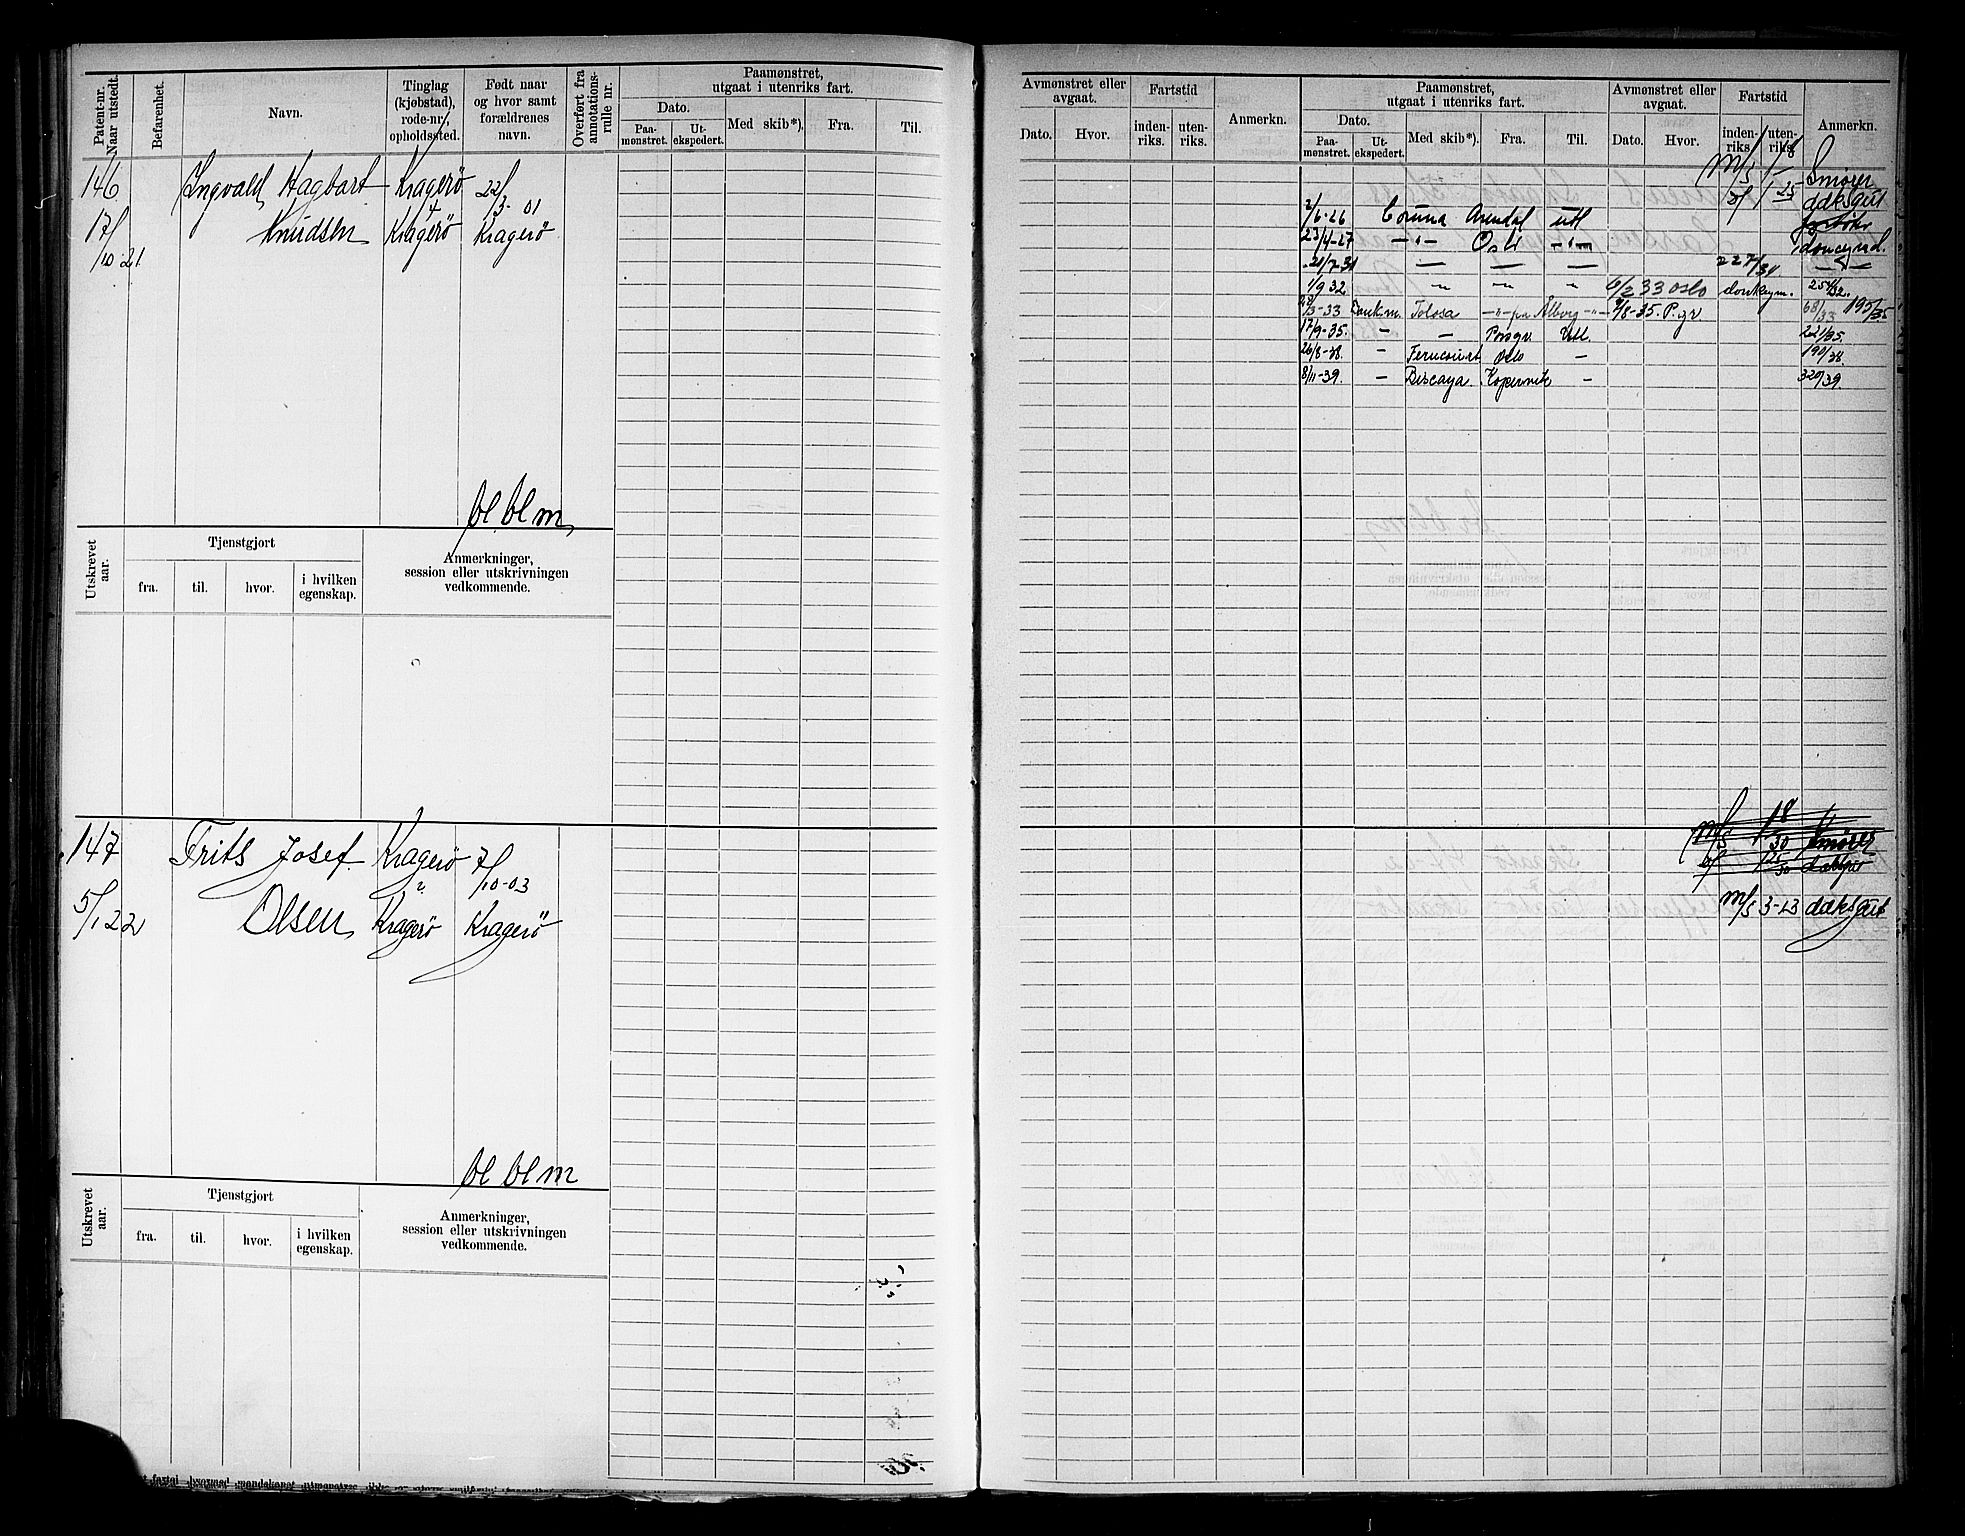 Patent-nr. Naar utstedt.
Befarenhet.
Navn.
Tinglag (kjøbstad), rode-nr., opholdssted.
Født naar og hvor samt forældrenes navn.
Overført fra annotations-rulle nr.
Paamønstret, utgaat i utenriks fart.
Dato.
Paa-mønstret.
Ut-ekspedert.
Med skib*).
Fra.
Til.
146
Ingvald Hagbart
Kragerö
22/3-01
17/10 21
Knudsen
Kragerö
Kragerö
bl. bl m,
Utskrevet aar.
Tjenstgjort
fra.
til.
hvor.
i hvilken egenskap.
Anmerkninger, session eller utskrivningen vedkommende.
147
Frits Josef
Kragerö
7/10-03
5/1 22
Olsen
Kragerö
Kragerö
bl bl m
Utskrevet aar.
Tjenstgjort
fra.
til.
hvor.
i hvilken egenskap.
Anmerkninger, session eller utskrivningen vedkommende.
Avmønstret eller avgaat.
Dato.
Hvor.
Fartstid
inden-riks.
uten-riks.
Anmerkn.
Paamønstret, utgaat i utenriks fart.
Dato.
Paa-mønstret.
Ut-ekspedert.
Med skib*).
Fra.
Til.
Avmønstret eller avgaat.
Dato.
Hvor.
Fartstid
inden-riks.
uten-riks.
Anmerkn.
Smører
dæksgut
2/6-26 Coruna Arendal utl
23/4-27 -"- Oslo -"-
21/7-31 — — — 227/31
1/9 32 " " " 6/2 33 Oslo donkeym. 254/32.
28/3-33 Donk.m. Tolosa -"- pa Ålborg -"- 9/8-35. P.gr. 68/33 195/35
17/9-35. - — Porsgr. Utl. 221/35.
26/8-38. - Oslo - 190/38
8/11-39. - Biscaya. Kopervik - 320/39.
Smører
m/s 3-13 dæksgut